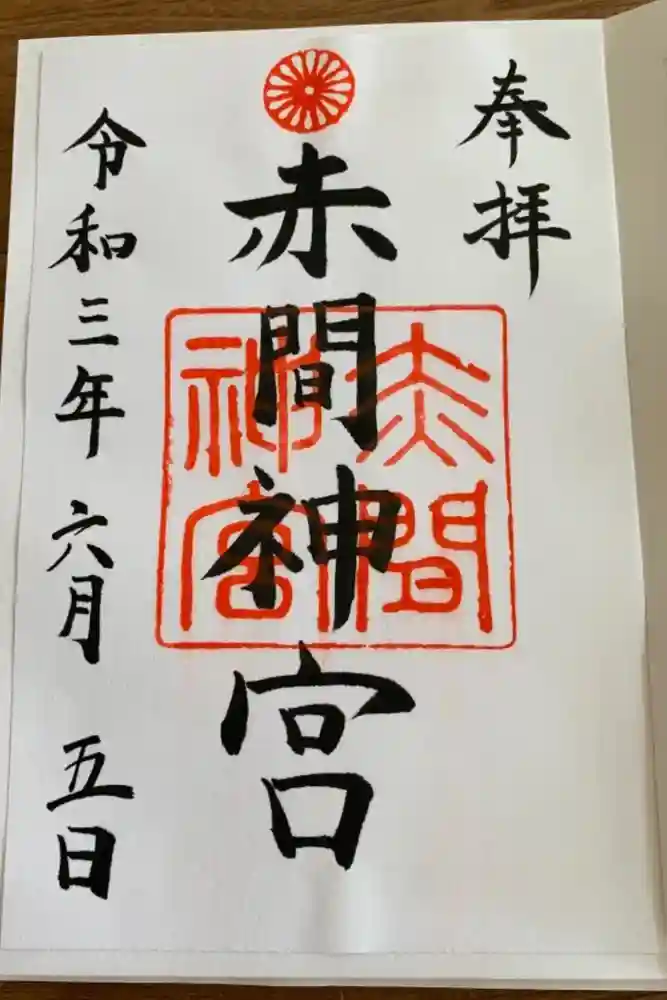 奉拝
赤間神宮
赤間神宮
令和三年 六月 五日